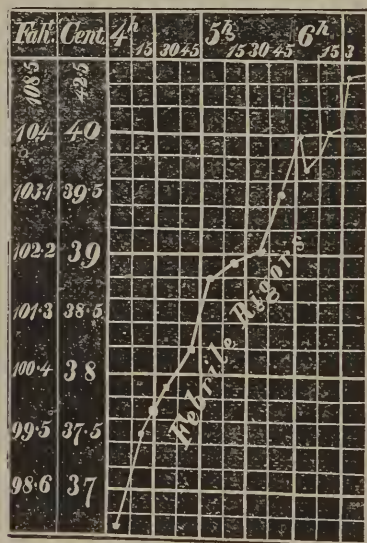 Fah. Cent. 4h 15 30 45 5h 15 30 45 6h 15 3
104 40
103·1 39·5
102·2 39
101·3 38·5
100·4 38
99·5 37·5
98·6 37
Febrile Rigors